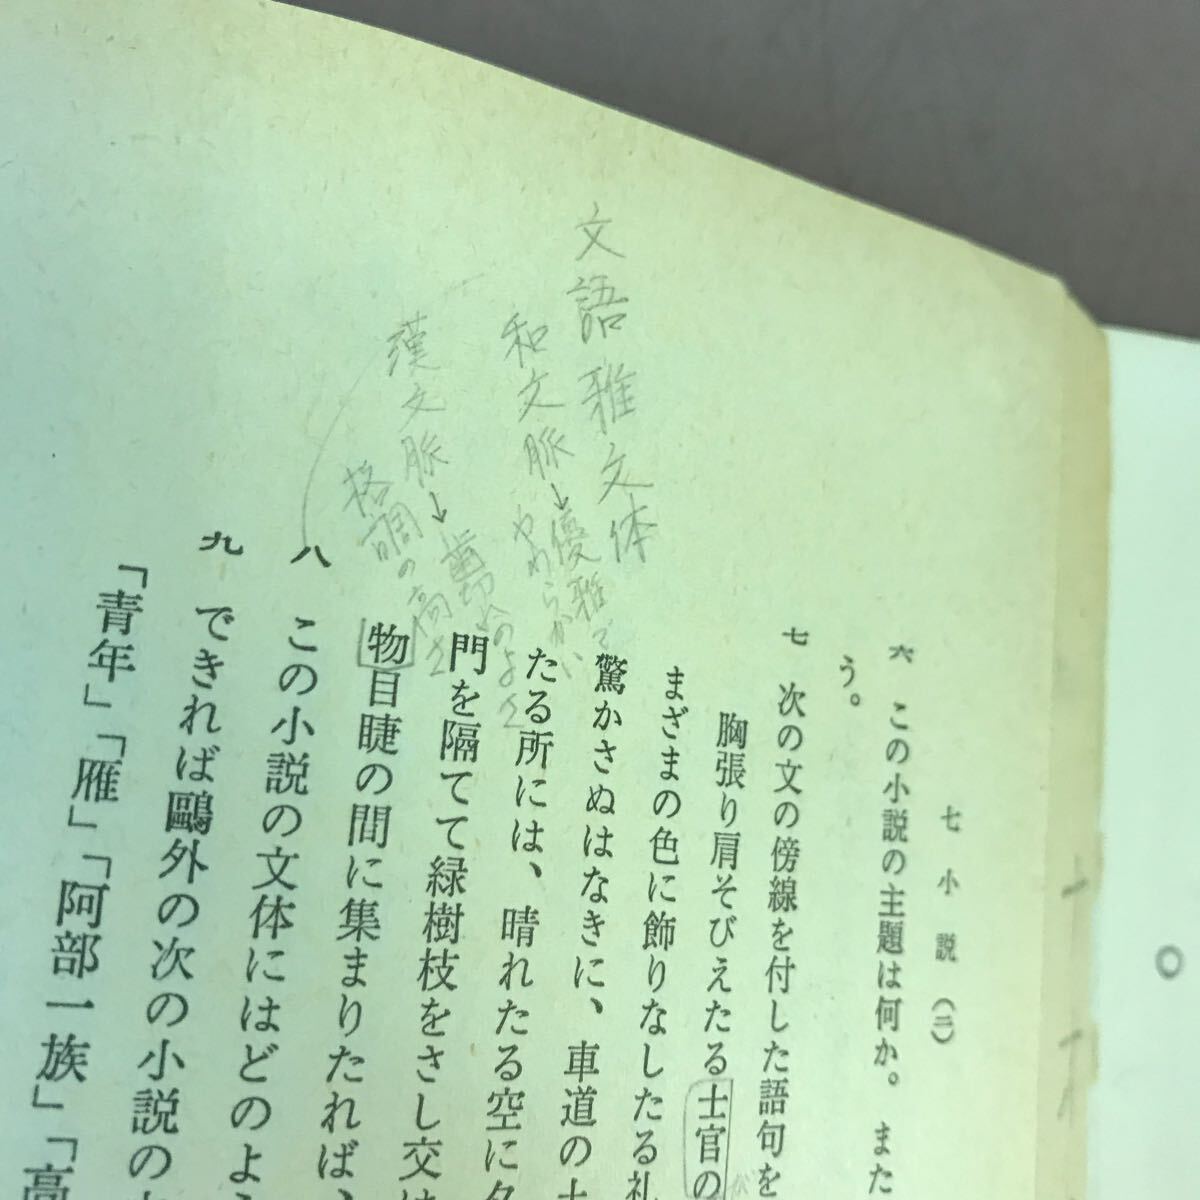 七 小 説 (三)
六 この小説の主題は何か。 また
う。
七 次の文の傍線を付した語句を
胸張り肩そびえたる士官の
まざまの色に飾りなしたる礼
驚かさぬはなきに、車道の土
たる所には、晴れたる空に夕
門を隔てて緑樹枝をさし交は
物目睫の間に集まりたれば、
八 この小説の文体にはどのよう
九 できれば鷗外の次の小説の
「青年」「雁」「阿部一族」「高
文語雅文体
和文脈→優雅で
やわらかい
漢文脈→歯切れのよさ
格調の高さ